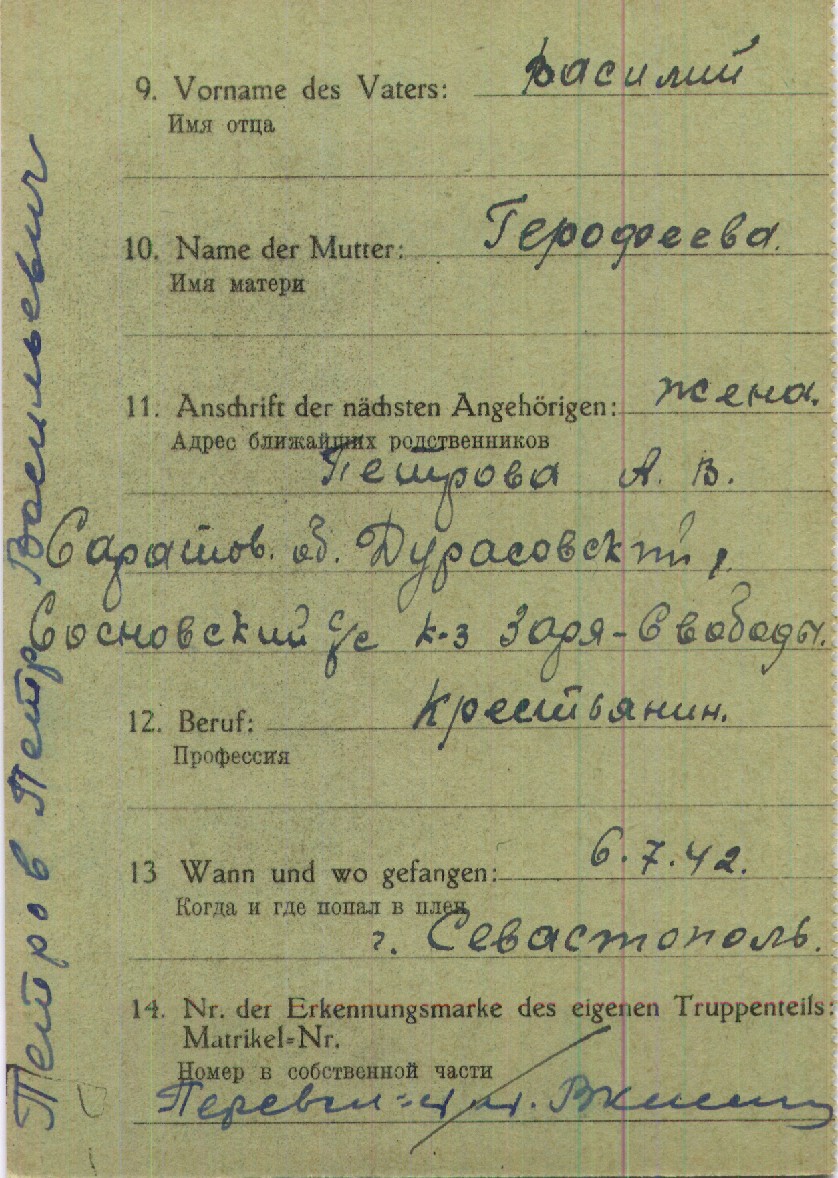 9. Vorname des Vaters: Василий
Имя отца
10. Name der Mutter: Герофеева.
Имя матери
11. Anschrift der nächsten Angehörigen: жена.
Адрес ближайших родственников
Петрова А. В.
Саратов. об. Дурасовский,
Сосновский с/с к-з Заря-Свободы.
12. Beruf: Крестьянин.
Профессия
13 Wann und wo gefangen: 6.7.42.
Когда и где попал в плен
г. Севастополь.
14. Nr. der Erkennungsmarke des eigenen Truppenteils:
Matrikel-Nr.
Номер в собственной части
Петров Петр Васильевич